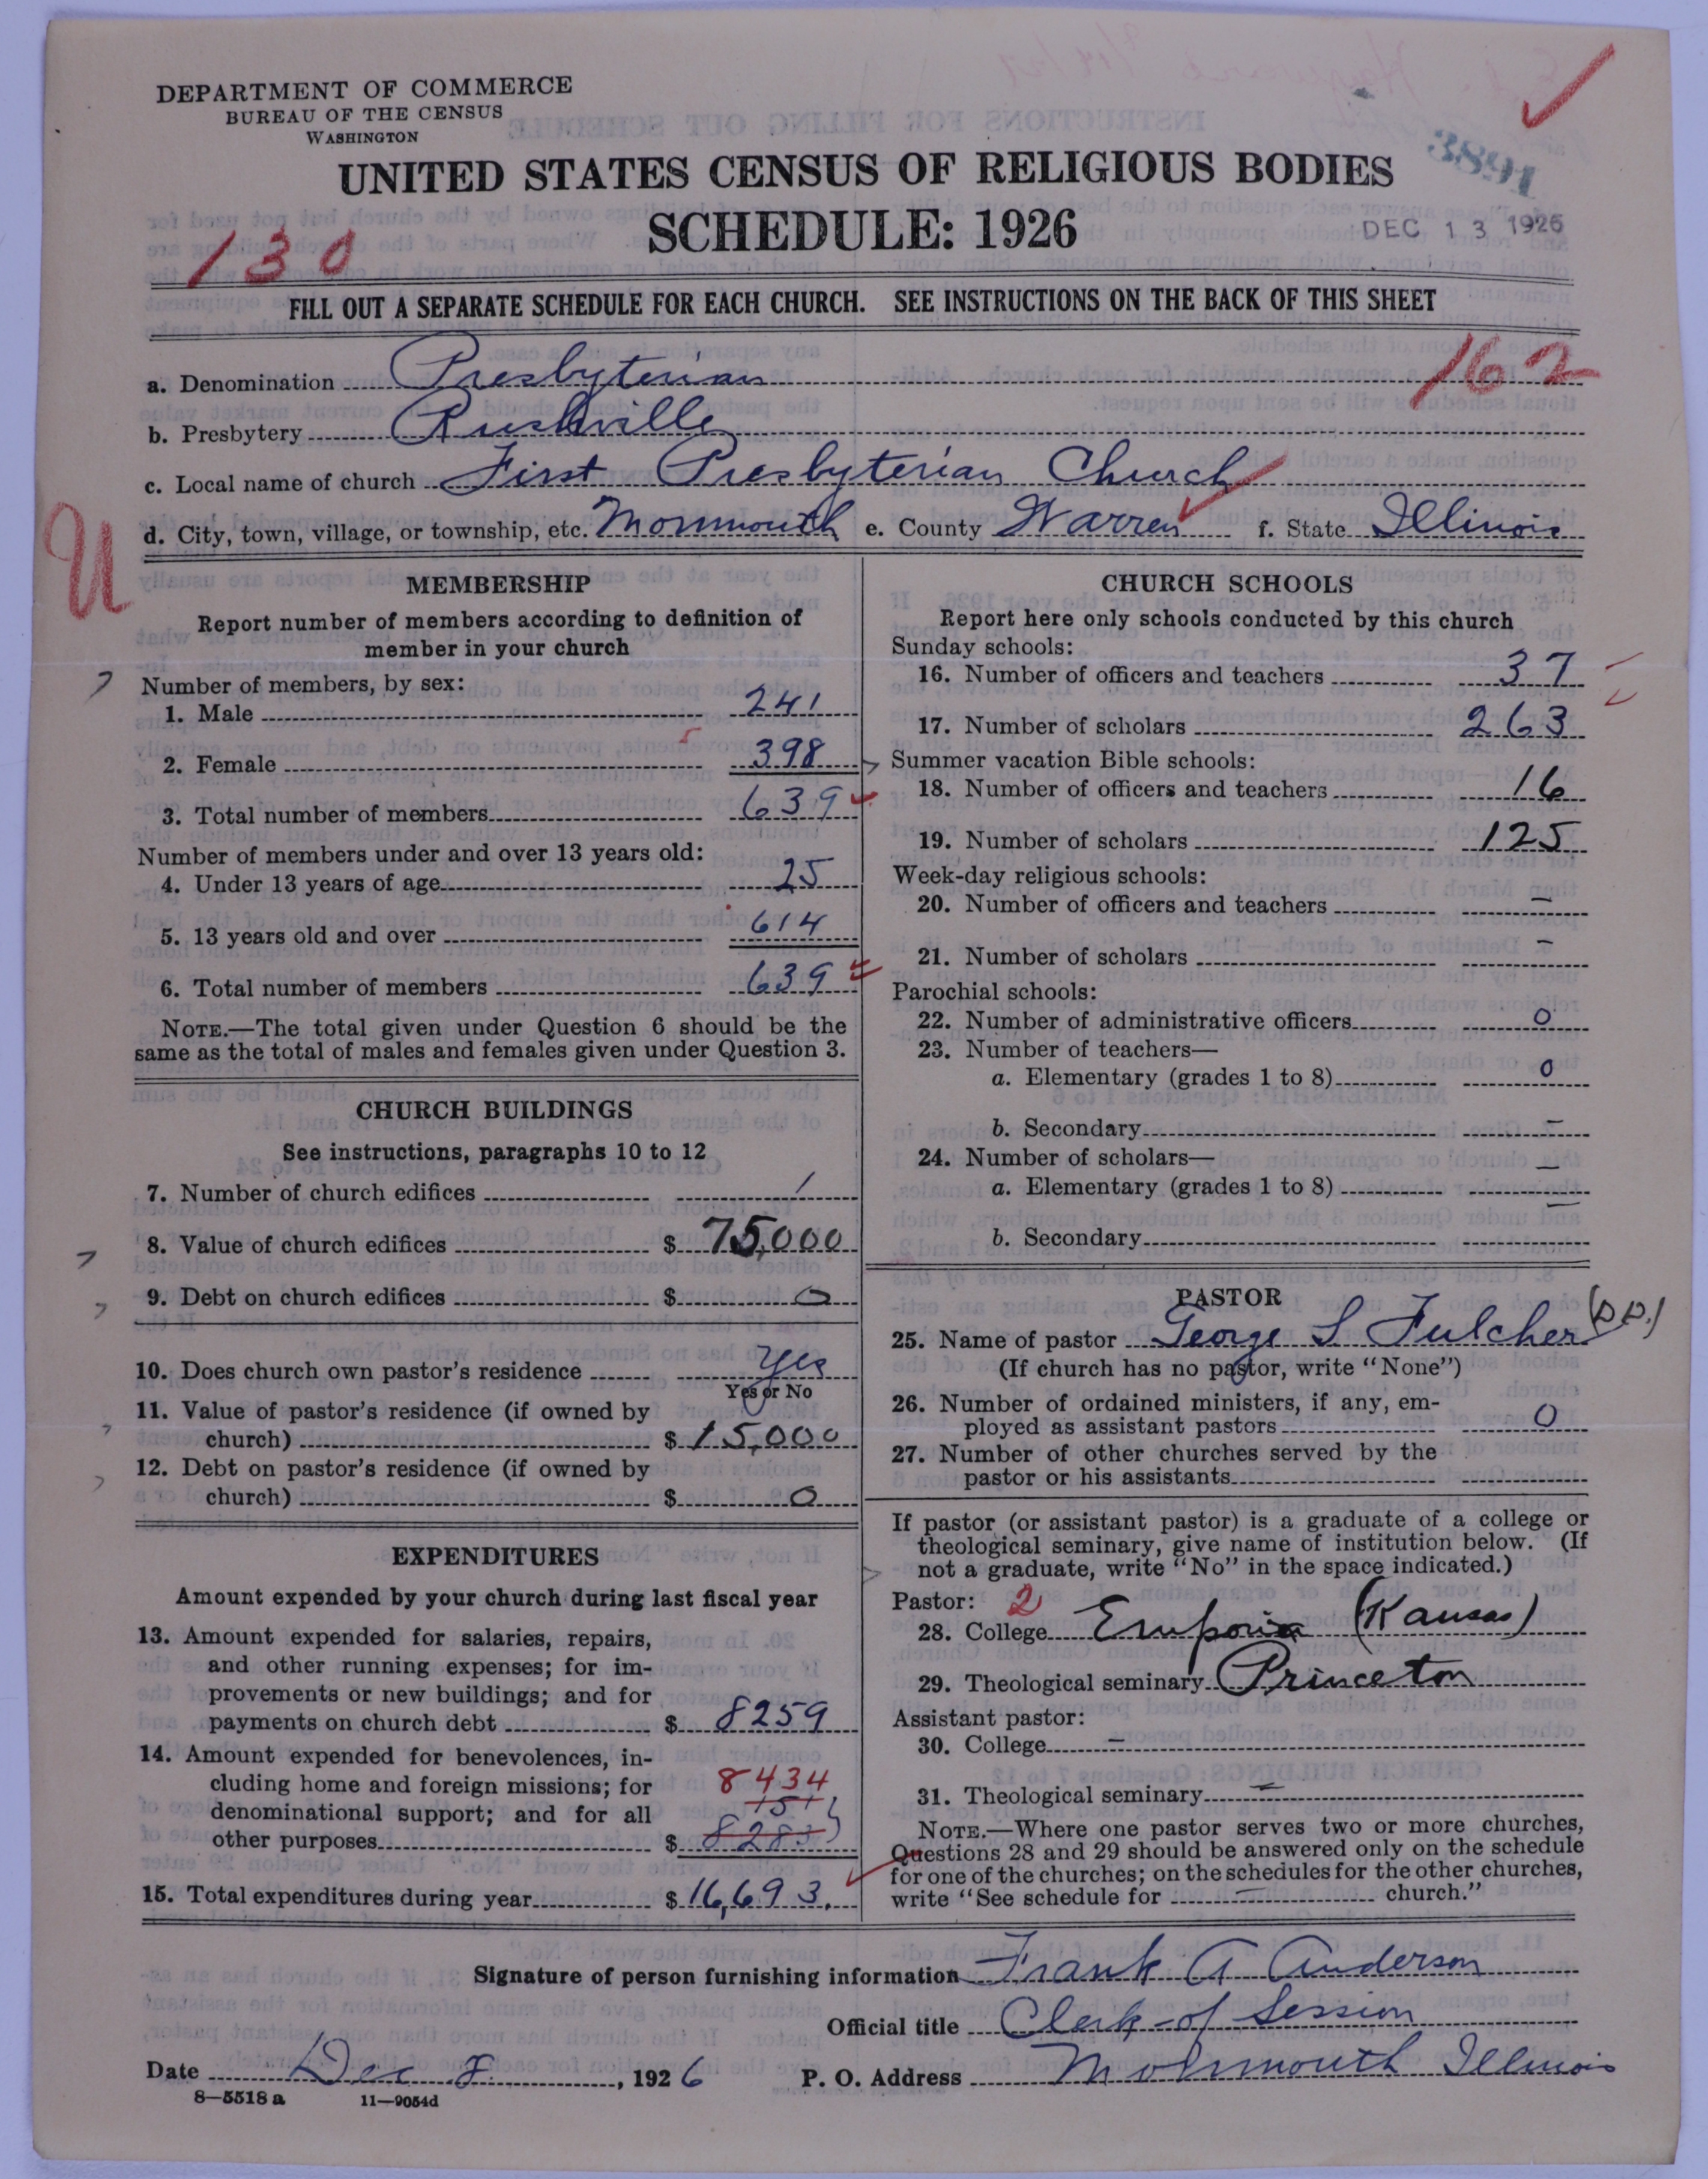 DEPARTMENT OF COMMERCE
BUREAU OF THE CENSUS
WASHINGTON
UNITED STATES CENSUS OF RELIGIOUS BODIES
SCHEDULE: 1926
3891
DEC 13 1926
130
FILL OUT A SEPARATE SCHEDULE FOR EACH CHURCH. SEE INSTRUCTIONS ON THE BACK OF THIS SHEET
162
a. Denomination Presbyterian
b. Presbytery Rushville
c. Local name of church First Presbyterian Church
d. City, town, village, or township, etc. Monmouth e. County Warren f. State Illinois
U
MEMBERSHIP
Report number of members according to definition of
member in your church
Number of members, by sex:
1. Male 241
2. Female 398
3. Total number of members 639
Number of members under and over 13 years old:
4. Under 13 years of age 25
5. 13 years old and over 614
6. Total number of members 639
NOTE.—The total given under Question 6 should be the
same as the total of males and females given under Question 3.
CHURCH BUILDINGS
See instructions, paragraphs 10 to 12
7. Number of church edifices 1
8. Value of church edifices $ 75,000
9. Debt on church edifices $ 0
10. Does church own pastor's residence Yes
Yes or No
11. Value of pastor's residence (if owned by
church) $ 15,000
12. Debt on pastor's residence (if owned by
church) $ 0
EXPENDITURES
Amount expended by your church during last fiscal year
13. Amount expended for salaries, repairs,
and other running expenses; for im-
provements or new buildings; and for
payments on church debt $ 8259
14. Amount expended for benevolences, in-
cluding home and foreign missions; for 8434
denominational support; and for all 151
other purposes $ 8283
15. Total expenditures during year $ 16,693.
CHURCH SCHOOLS
Report here only schools conducted by this church
Sunday schools:
16. Number of officers and teachers 37
17. Number of scholars 263
Summer vacation Bible schools:
18. Number of officers and teachers 16
19. Number of scholars 125
Week-day religious schools:
20. Number of officers and teachers —
21. Number of scholars —
Parochial schools:
22. Number of administrative officers 0
23. Number of teachers—
a. Elementary (grades 1 to 8) 0
b. Secondary —
24. Number of scholars—
a. Elementary (grades 1 to 8) —
b. Secondary —
PASTOR
25. Name of pastor George S Fulcher (D.D.)
(If church has no pastor, write "None")
26. Number of ordained ministers, if any, em-
ployed as assistant pastors 0
27. Number of other churches served by the
pastor or his assistants
If pastor (or assistant pastor) is a graduate of a college or
theological seminary, give name of institution below. (If
not a graduate, write "No" in the space indicated.)
Pastor: 2
28. College Emporia (Kansas)
29. Theological seminary Princeton
Assistant pastor:
30. College —
31. Theological seminary —
NOTE.—Where one pastor serves two or more churches,
Questions 28 and 29 should be answered only on the schedule
for one of the churches; on the schedules for the other churches,
write "See schedule for — church."
Signature of person furnishing information Frank A Anderson
Official title Clerk of Session
Date Dec 8, 1926 P. O. Address Monmouth Illinois
8—5518 a 11—9054d